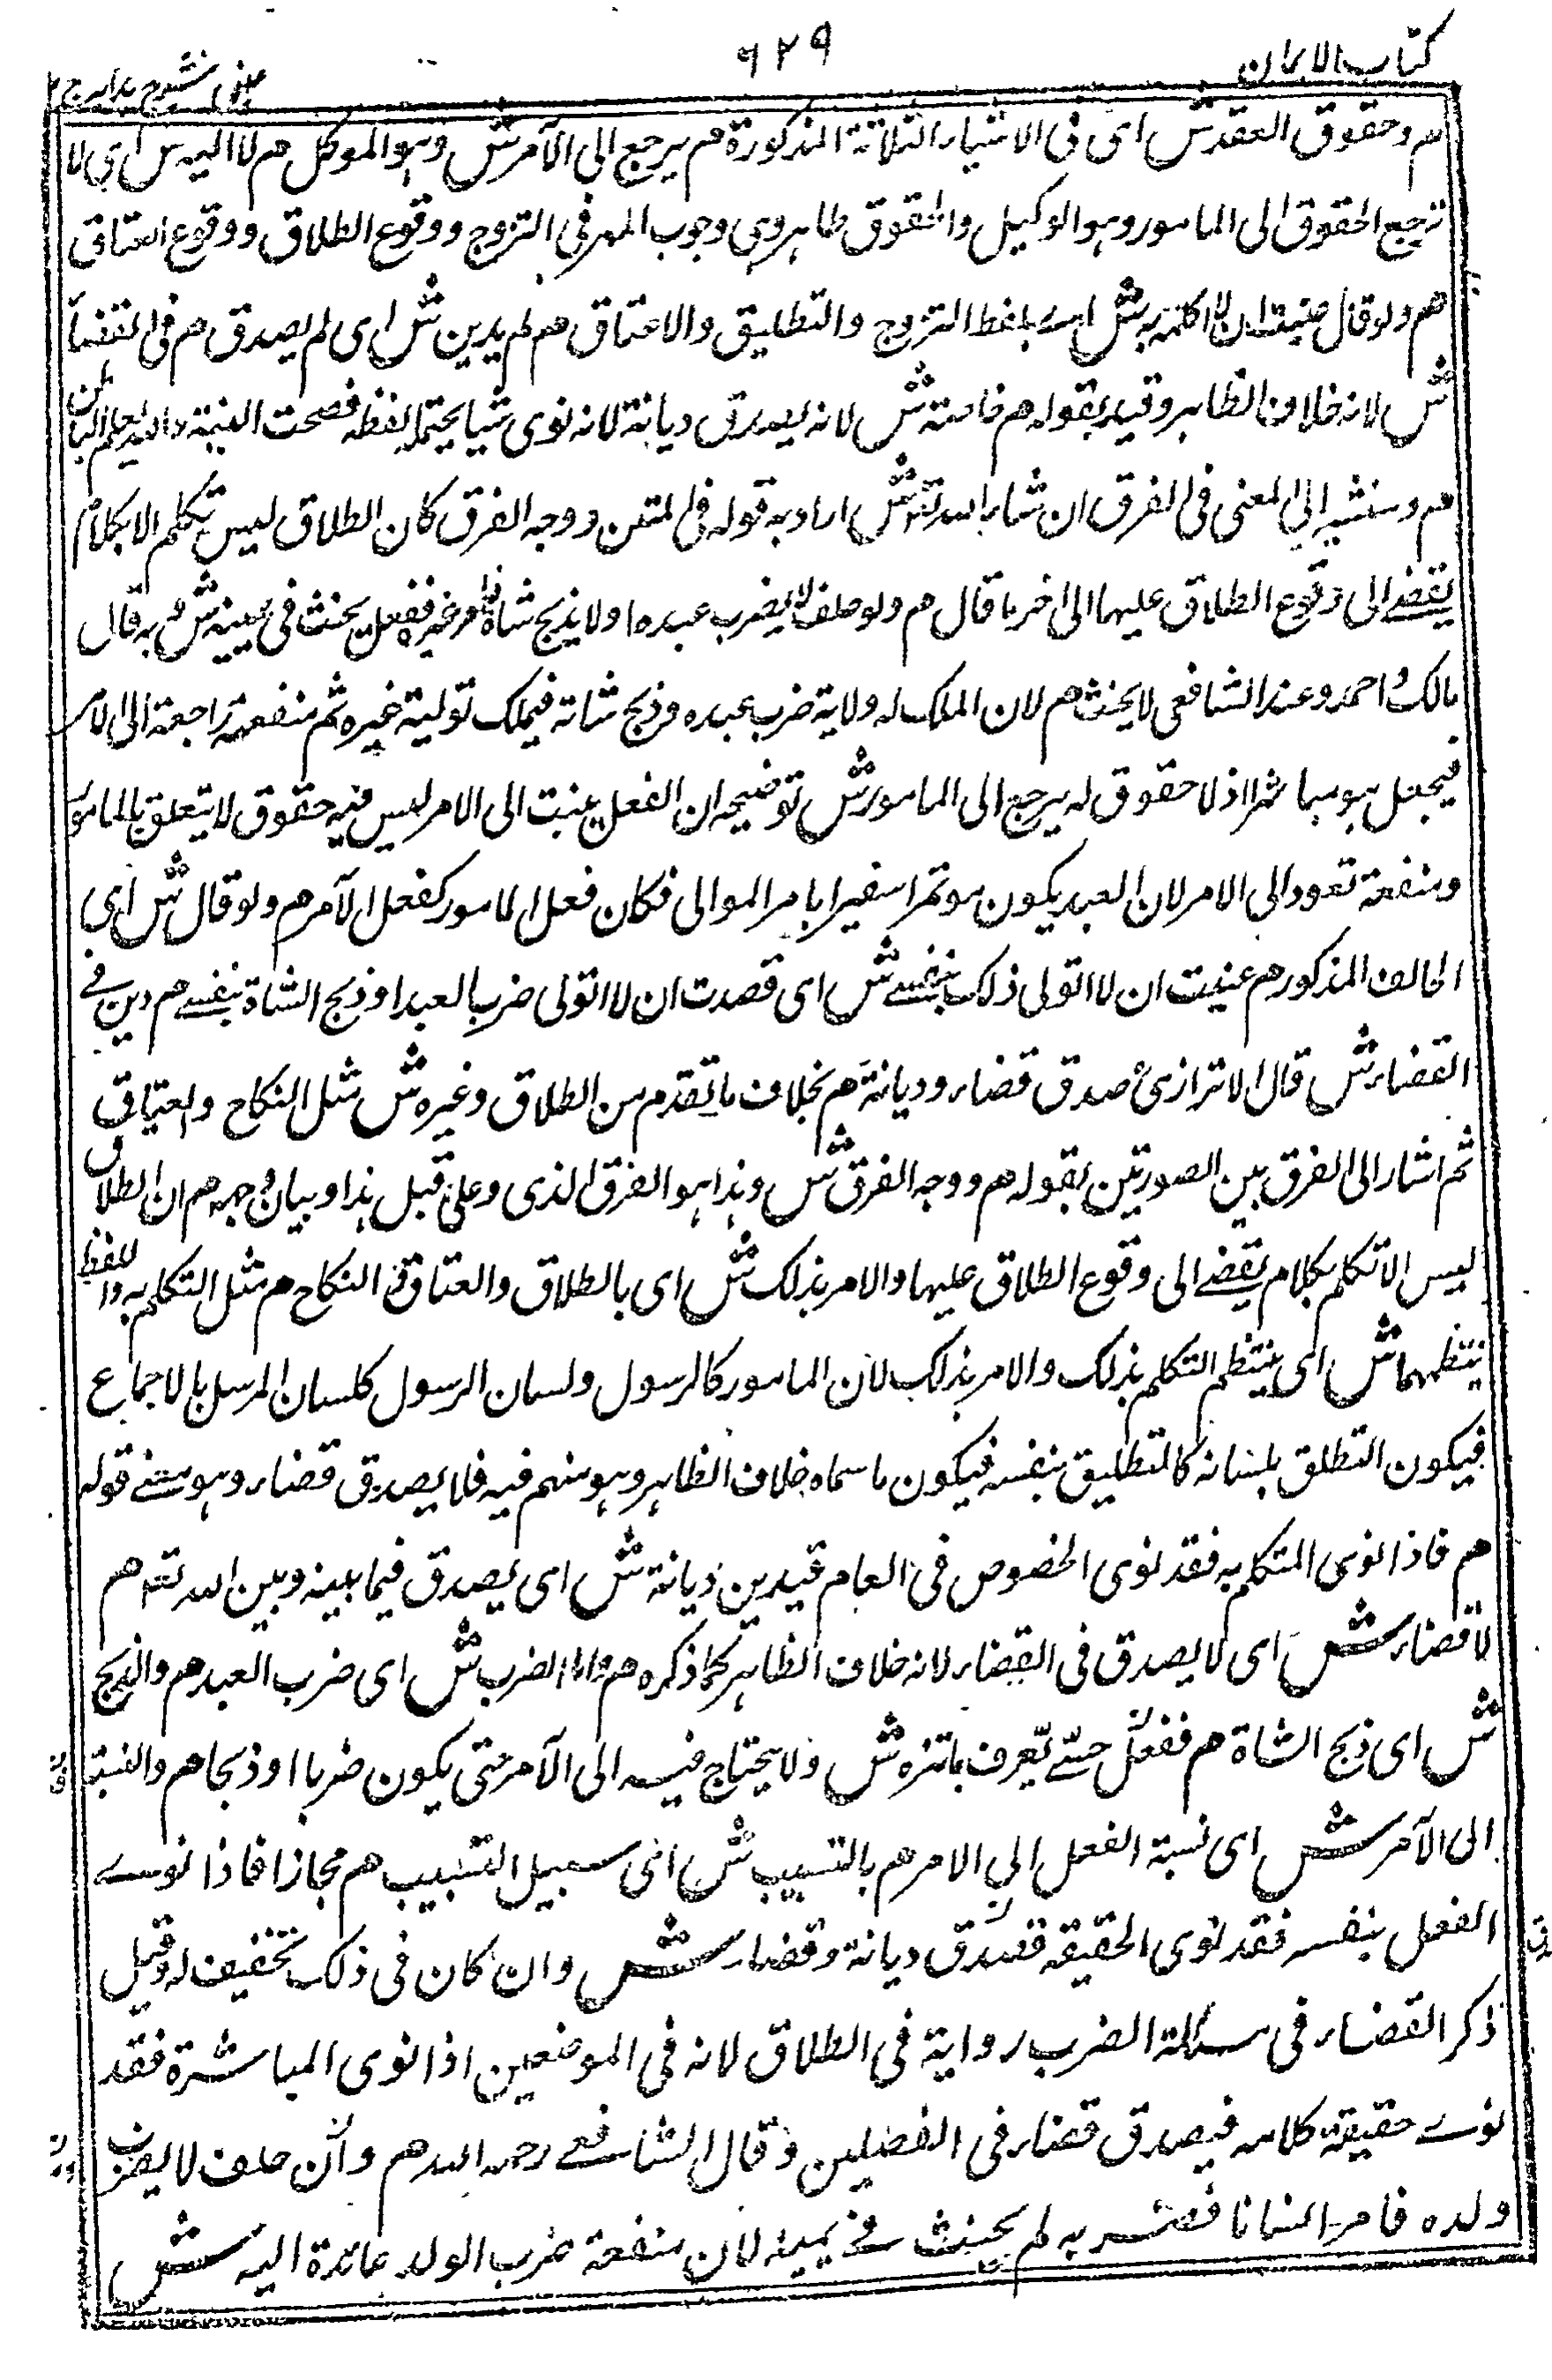 كتاب الايمان
٩٢٩
عينى شرح هدايه ج ٢
م وحقوق العقد ش اى فى الاشياء الثلاثة المذكورة م يرجع الى الآمر ش وهو الموكل م لا اليه ش اى لا
ترجع الحقوق الى المامور وهو الوكيل والحقوق ظاهر وهى وجوب المهر فى التزوج ووقوع الطلاق ووقوع العتاق
م ولو قال عنيت ان لا اتكلم به ش اى بلفظ التزوج والتطليق والاعتاق م لم يدين ش اى لم يصدق م فى القضاء
ش لانه خلاف الظاهر وقيد بقوله م خاصة ش لانه يصدق ديانة لانه نوى شيا يحتمله لفظه فصحت النية والله اعلم بالباطن
م وسنشير الى المعنى فى الفرق ان شاء الله تعالى ش اراد به قوله فى المتن ووجه الفرق كان الطلاق ليس تكلم الا بكلام
يفضى الى وقوع الطلاق عليها الى اخر ما قال م ولو حلف لا يضرب عبده او لا يذبح شاة فامر غيره ففعل يحنث فى يمينه ش وبه قال
مالك واحمد وعند الشافعى لا يحنث م لان المالك له ولاية ضرب عبده وذبح شاته فيملك تولية غيره ثم منفعته راجعة الى الامر
فيجعل هو مباشرا اذ لا حقوق له يرجع الى المامور ش توضيحه ان الفعل ينسب الى الامر ليس فيه حقوق لا يتعلق بالمامور
ومنفعة تعود الى الامر لان العبد يكون موتمرا سفيرا بامر الموالى فكان فعل المامور كفعل الآمر م ولو قال ش اى
الحالف المذكور م عنيت ان لا اتولى ذلك بنفسى ش اى قصدت ان لا اتولى ضرب العبد او ذبح الشاة بنفسى م دين فى
القضاء ش قال الاترازى صدق قضاء وديانة م بخلاف ما تقدم من الطلاق وغيره ش مثل النكاح والعتاق
ثم اشار الى الفرق بين الصورتين بقوله م ووجه الفرق ش وهذا هو الفرق الذى وعد قبل هذا وبيان وجهه م ان الطلاق
ليس الا تكلم بكلام يفضى الى وقوع الطلاق عليها والامر بذلك ش اى بالطلاق والعتاق فى النكاح م مثل التكلم به واللفظ
ينتظمهما ش اى ينتظم التكلم بذلك والامر بذلك لان المامور كالرسول ولسان الرسول كلسان المرسل بالاجماع
فيكون التطلق بلسانه كالتطليق بنفسه فيكون ما سماه خلاف الظاهر وهو متهم فيه فلا يصدق قضاء وهو معنى قوله
م فاذا نوى المتكلم به فقد نوى الخصوص فى العام فيدين ديانة ش اى يصدق فيما بينه وبين الله تعه م
لا قضاء ش اى لا يصدق فى القضاء لانه خلاف الظاهر كما ذكره م واما الضرب ش اى ضرب العبد م والذبح
ش اى ذبح الشاة م ففعل حسى يعرف باثره ش ولا يحتاج فيه الى الآمر حتى يكون ضربا او ذبحا م والنسبة
الى الآمر ش اى نسبة الفعل الى الامر م بالتسبيب ش اى سبيل التسبيب م مجازا فاذا نوى
الفعل بنفسه فقد نوى الحقيقة فصدق ديانة وقضاء ش وان كان فى ذلك تخفيف له وقيل
ذكر القضاء فى مسئلة الضرب رواية فى الطلاق لانه فى الموضعين اذا نوى المباشرة فقد
نوى حقيقة كلامه فيصدق قضاء فى الفصلين وقال الشافعى رحمه الله م وان حلف لا يضرب
ولده فامر انسانا فضربه لم يحنث فى يمينه لان منفعة ضرب الولد عائدة اليه ش